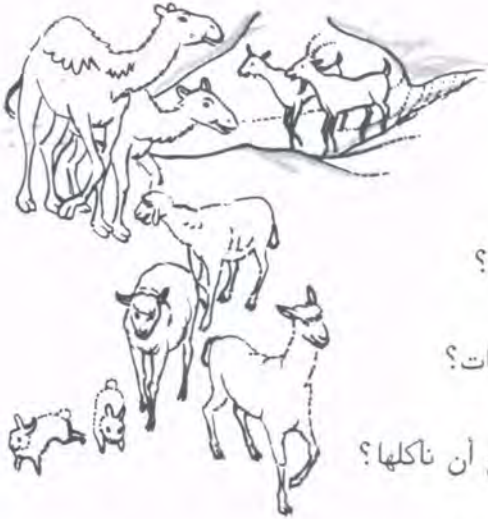 ؟
ات؟
أن ناكلها؟